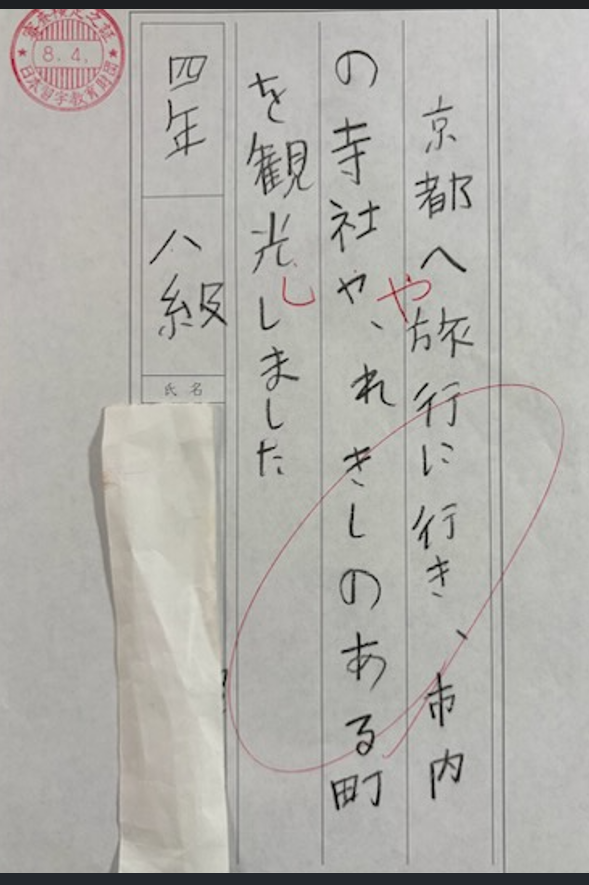 京都へ旅行に行き、市内
の寺社や、れきしのある町
を観光しました
四年 八級
氏名
や
し
8.4.
日本習字教育財団